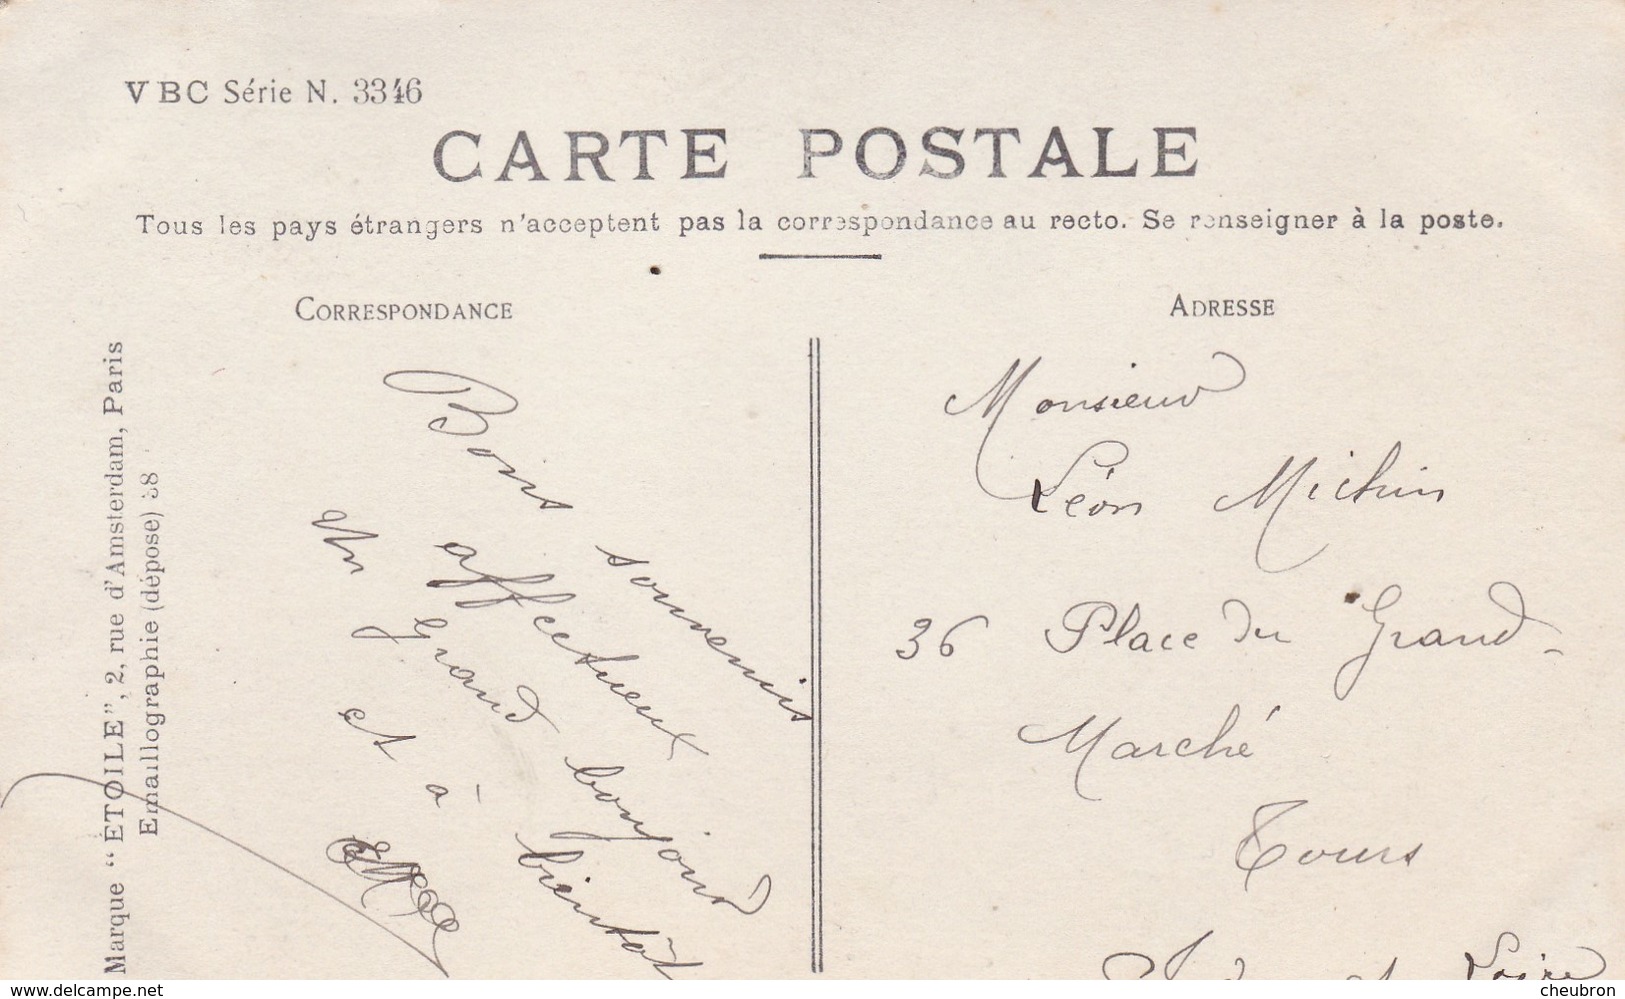 VBC Série N. 3346
CARTE POSTALE
Tous les pays étrangers n'acceptent pas la correspondance au recto. Se renseigner à la poste.
CORRESPONDANCE
ADRESSE
Marque "ETOILE", 2, rue d'Amsterdam, Paris
Emaillographie (déposé) 38
Bons souvenis
affectueux
Un Grand bonjour
et à bientôt
Monsieur
Léon Michin
36 Place du Grand-
Marché
Tours
Indre et Loire
www.delcampe.net
cheubron